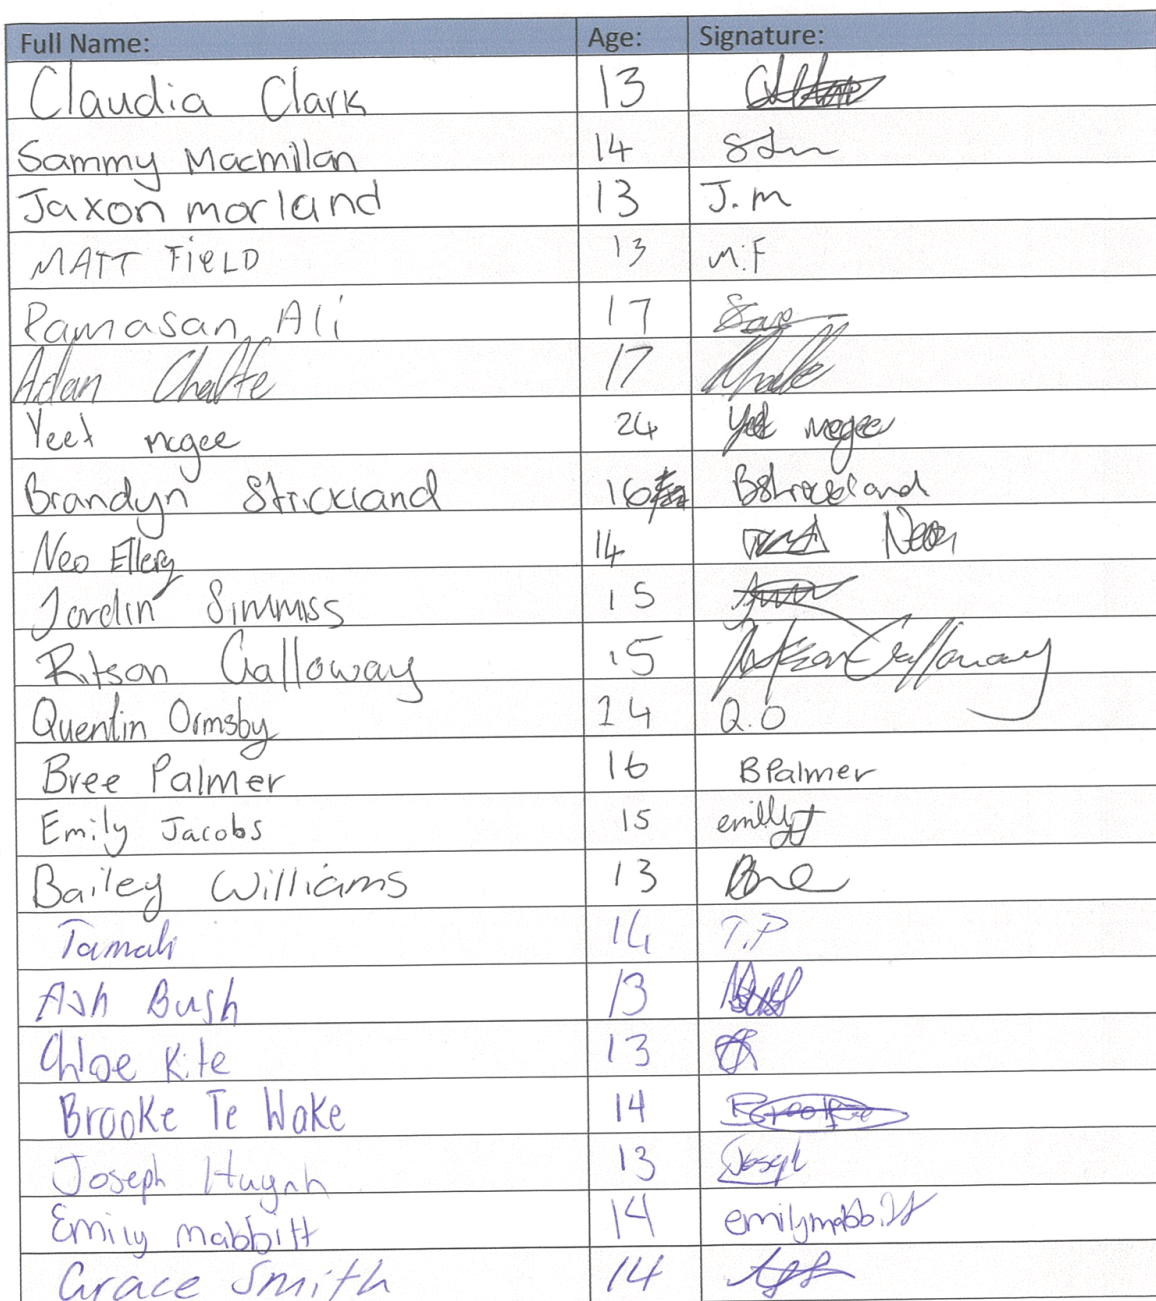 Full Name: Age: Signature:
Claudia Clark 13
Sammy Macmillan 14
Jaxon morland 13 J.m
MATT FiELD 13 M.F
Ramasan Ali 17
Adan Chalte 17
Yeet mcgee 24 Yeet mcgee
Brandyn Strickland 16 BStrickland
Neo Ellery 14 Neo
Jordin Simmiss 15
Ritson Galloway 15 Ritson Galloway
Quentin Ormsby 14 Q.O
Bree Palmer 16 BPalmer
Emily Jacobs 15 emilyJ
Bailey Williams 13
Tamati 14 T.P
Ash Bush 13
Chloe Kite 13
Brooke Te Wake 14 Brooke
Joseph Huynh 13 Joseph
Emily mabbitt 14 emilymabbitt
Grace Smith 14